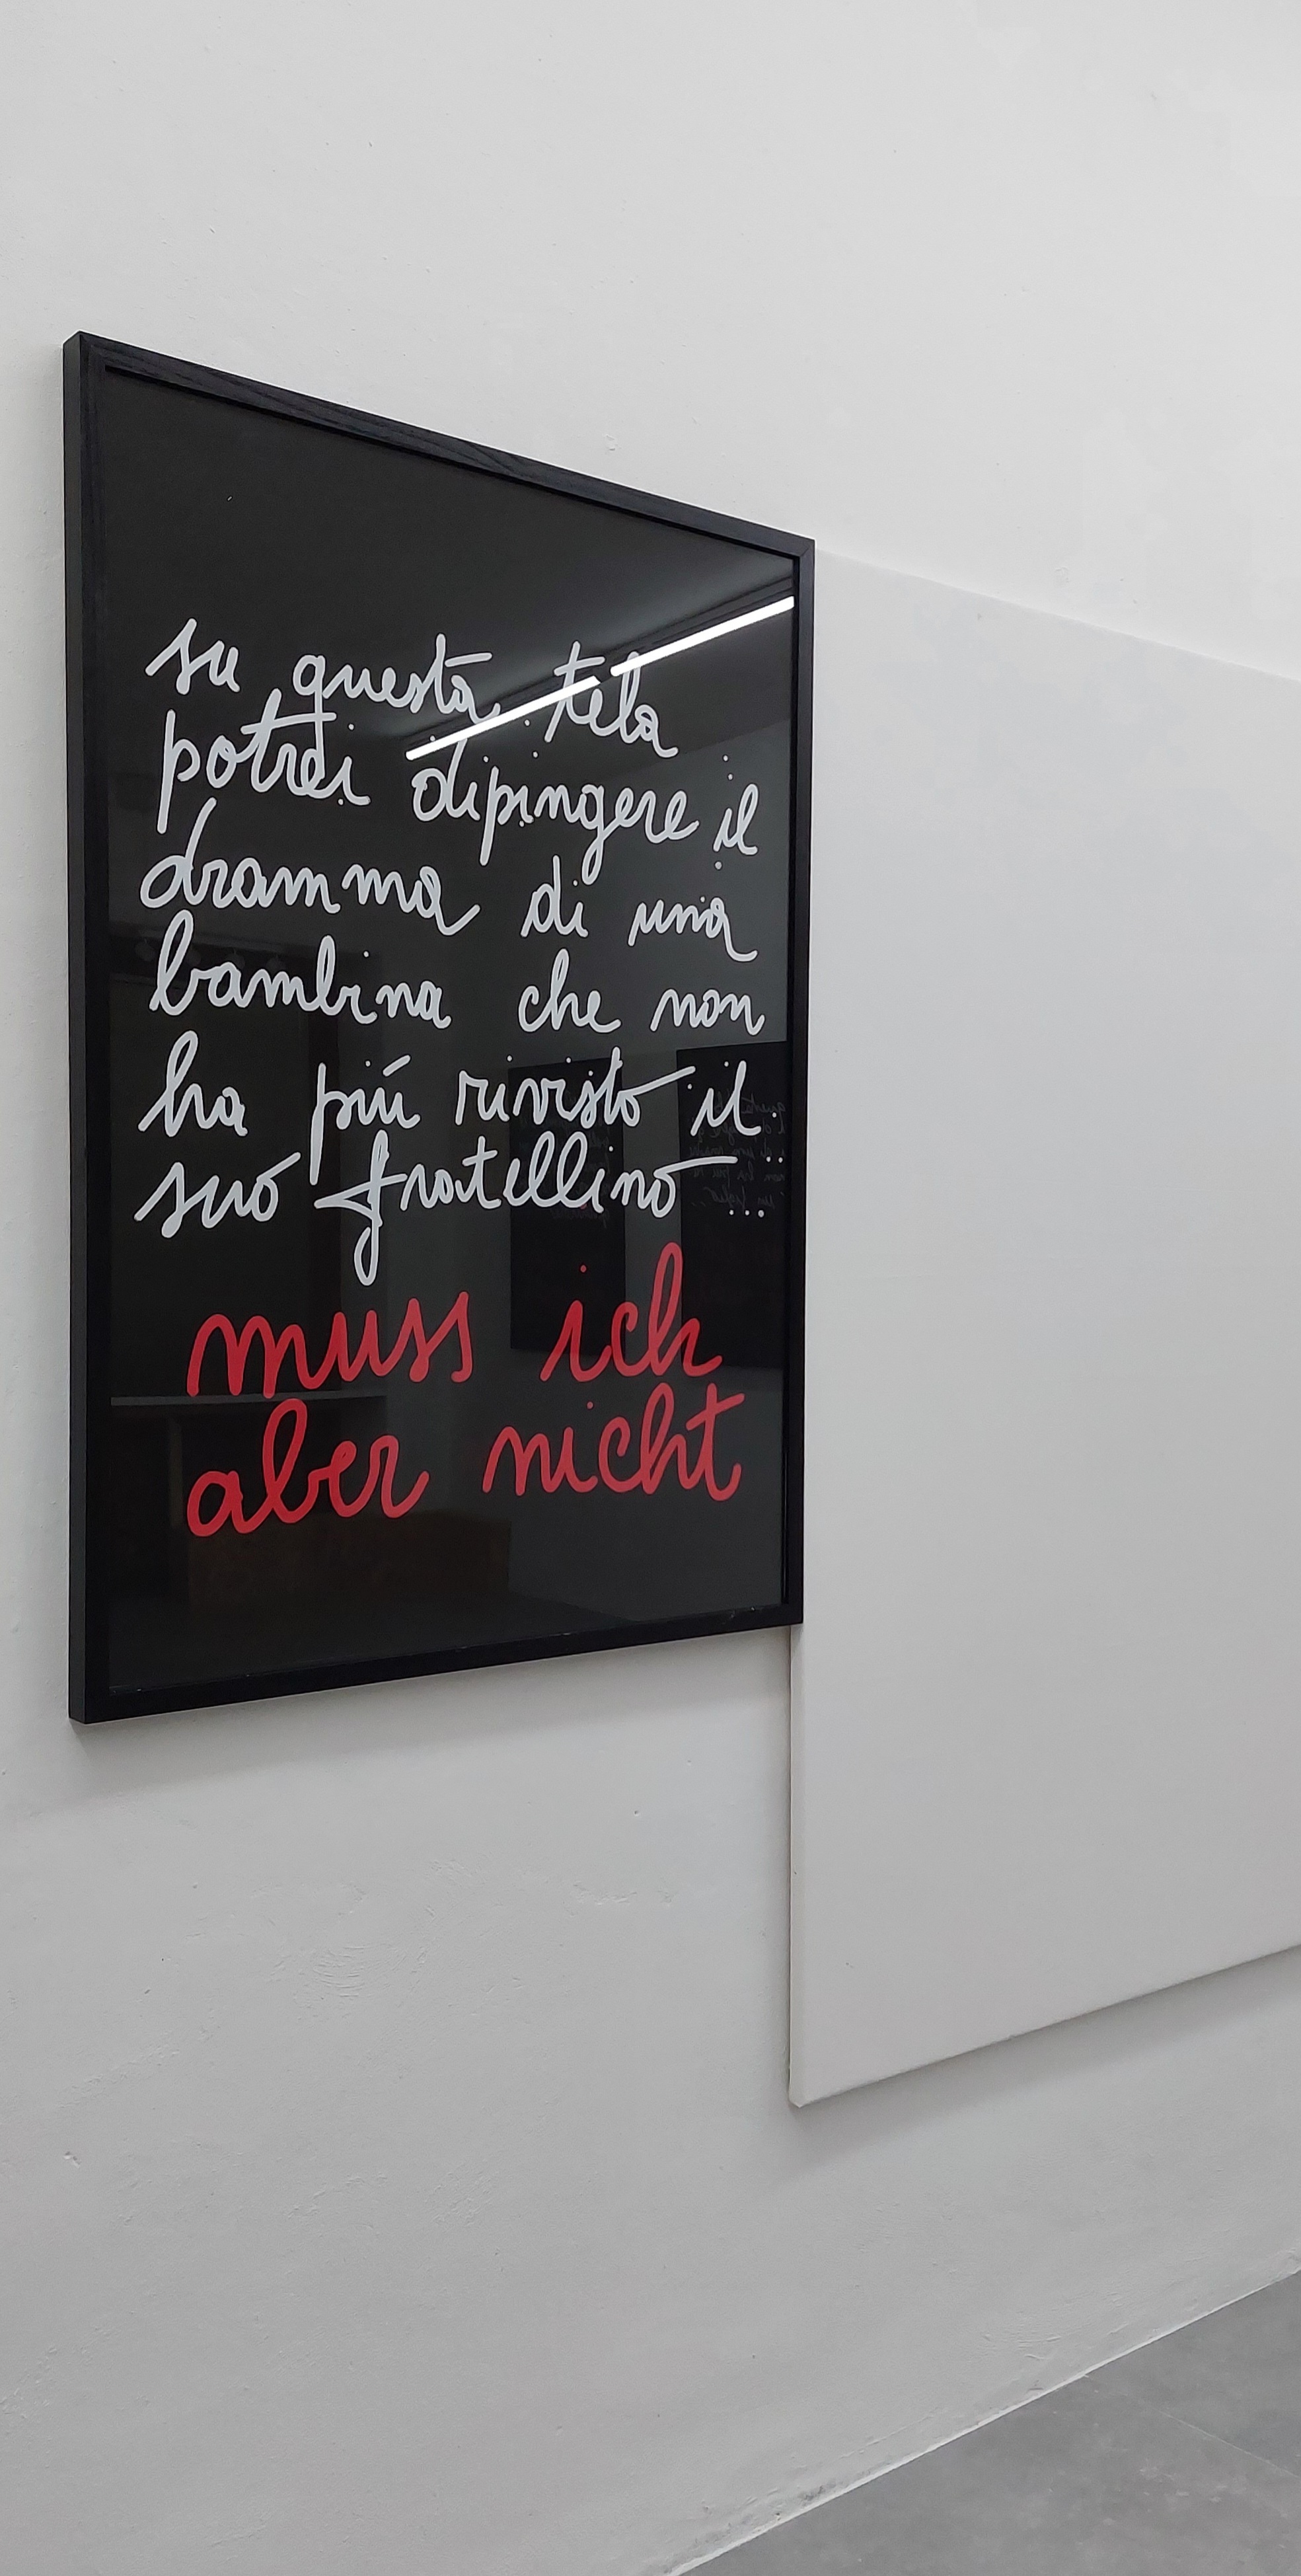 su questa tela
potrei dipingere il
dramma di una
bambina che non
ha più rivisto il
suo fratellino...
muss ich
aber nicht